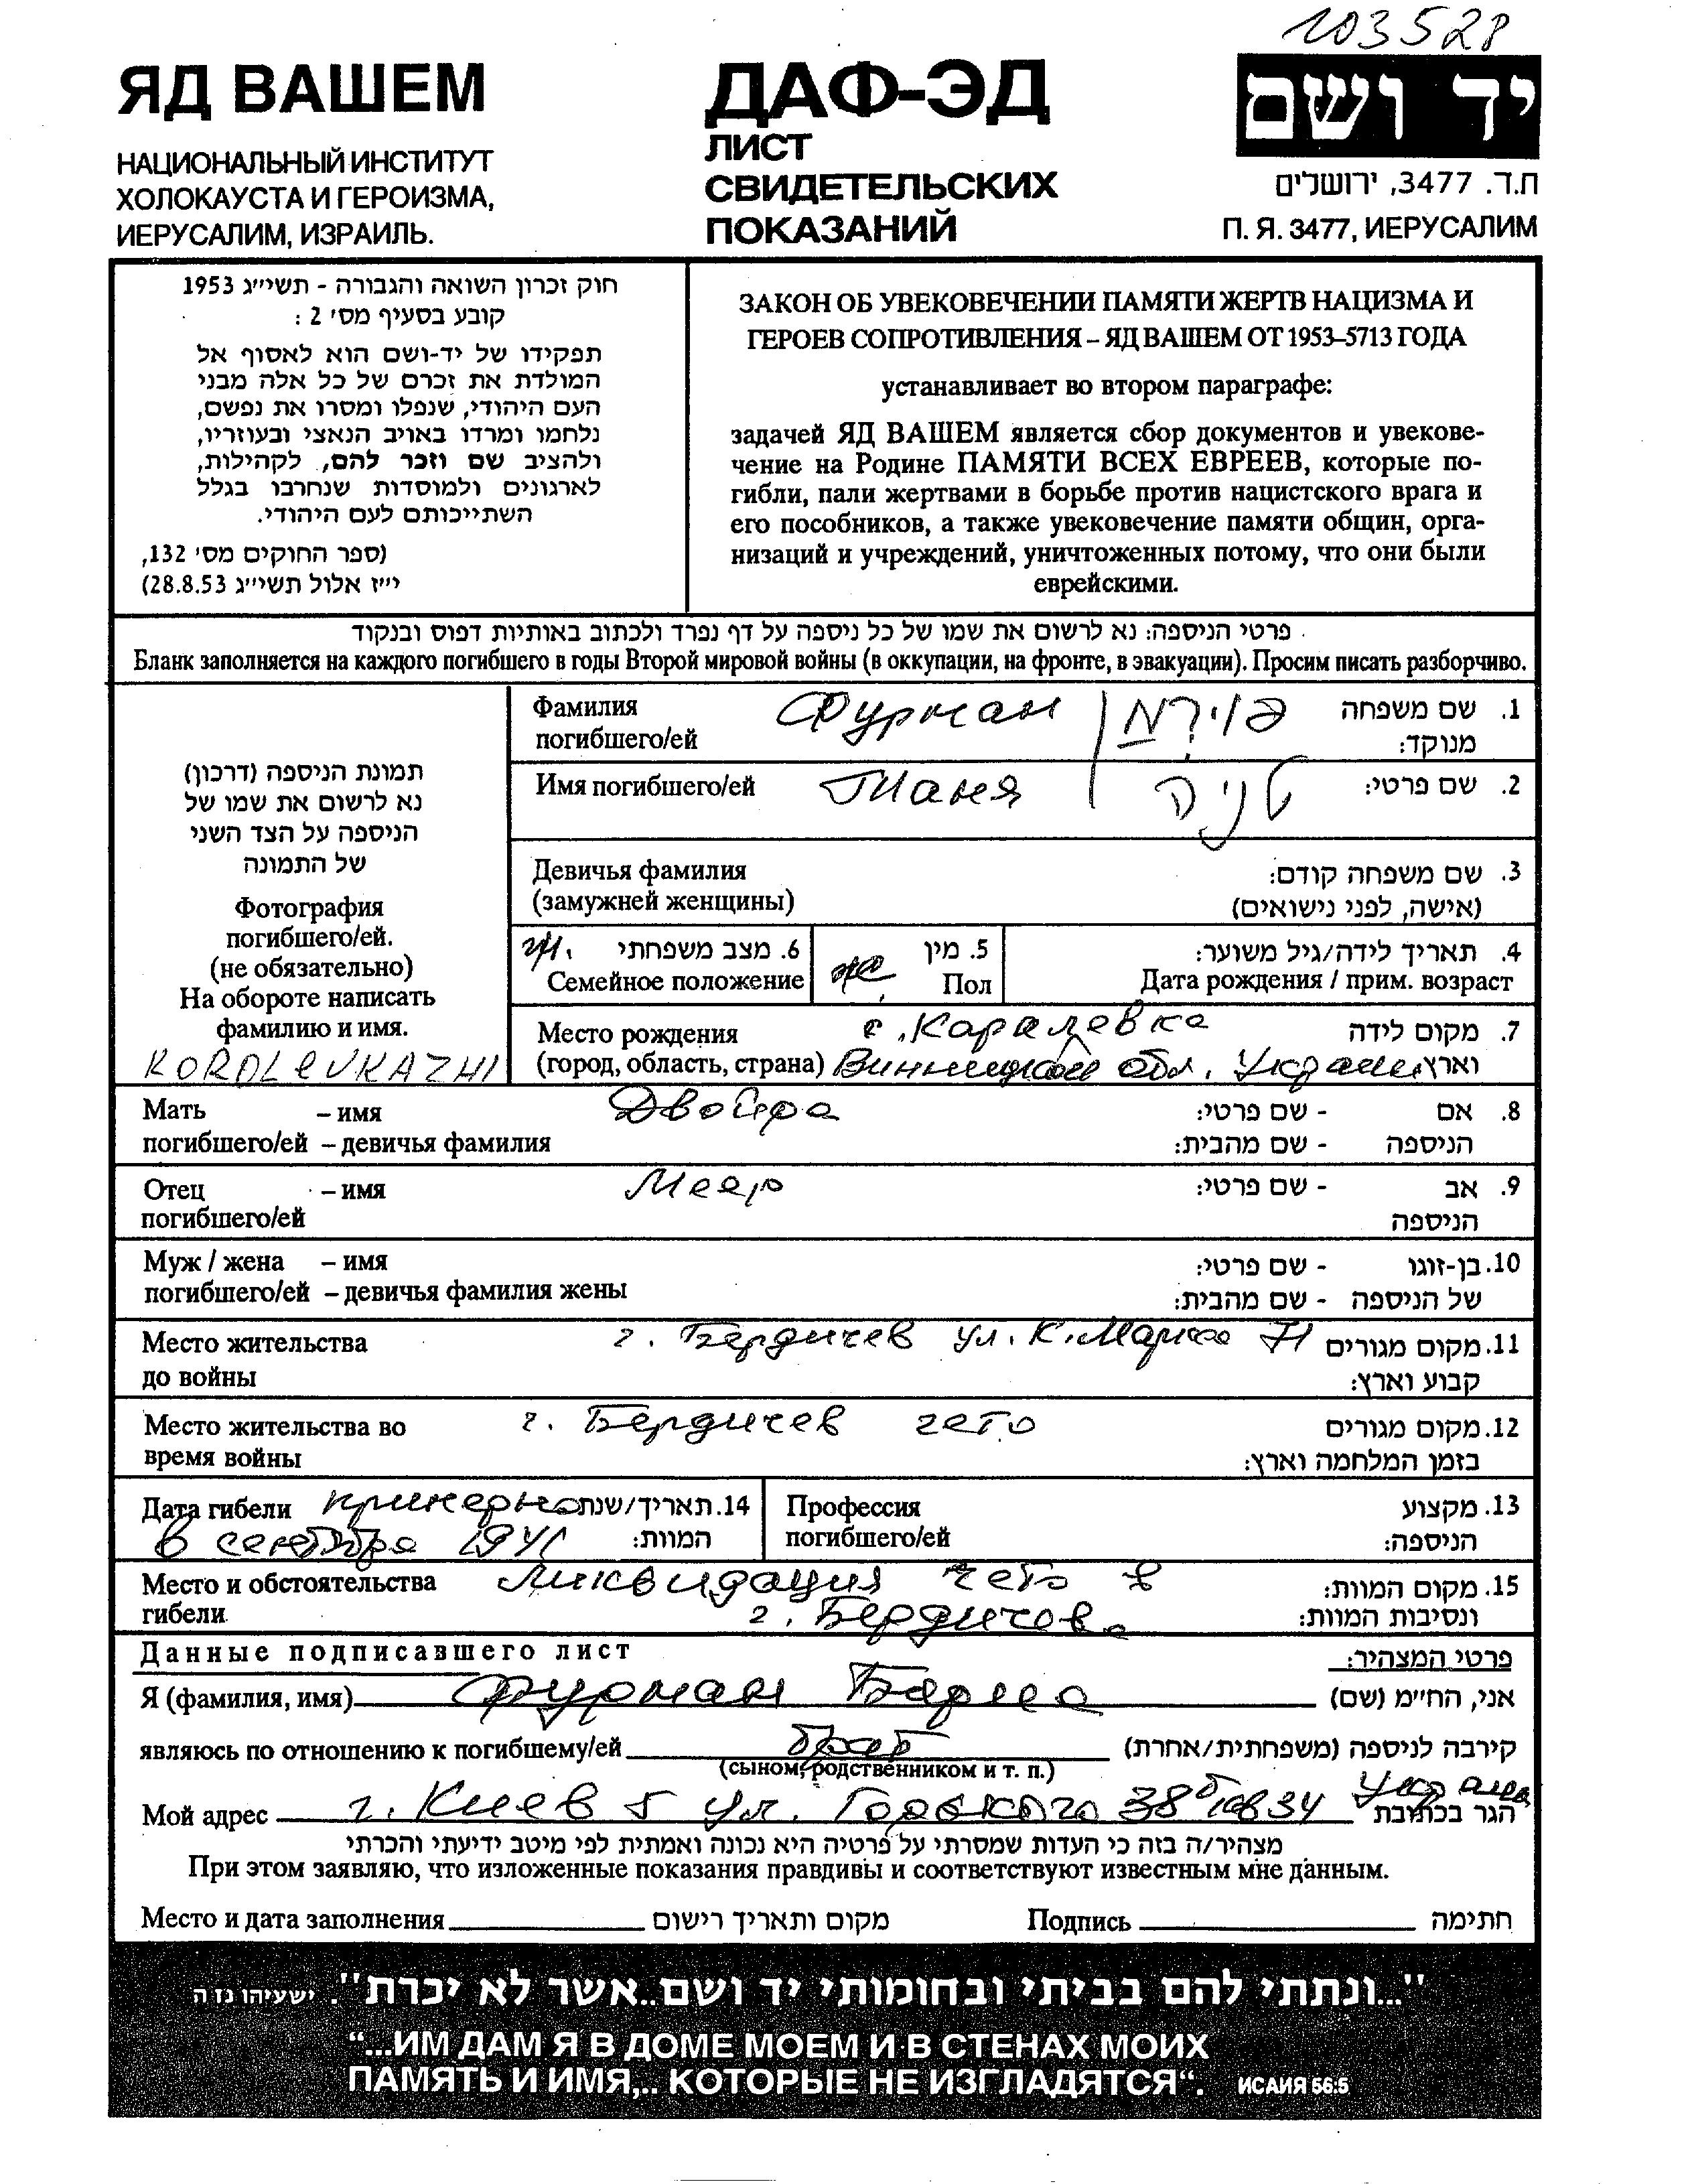 103528
ЯД ВАШЕМ
НАЦИОНАЛЬНЫЙ ИНСТИТУТ
ХОЛОКАУСТА И ГЕРОИЗМА,
ИЕРУСАЛИМ, ИЗРАИЛЬ.
ДАФ-ЭД
ЛИСТ
СВИДЕТЕЛЬСКИХ
ПОКАЗАНИЙ
יד ושם
ת.ד. 3477, ירושלים
П. Я. 3477, ИЕРУСАЛИМ
חוק זכרון השואה והגבורה - תשי״ג 1953
קובע בסעיף מס׳ 2 :
תפקידו של יד-ושם הוא לאסוף אל
המולדת את זכרם של כל אלה מבני
העם היהודי, שנפלו ומסרו את נפשם,
נלחמו ומרדו באויב הנאצי ובעוזריו,
ולהציב שם וזכר להם, לקהילות,
לארגונים ולמוסדות שנחרבו בגלל
השתייכותם לעם היהודי.
(ספר החוקים מס׳ 132,
י״ז אלול תשי״ג 28.8.53)
ЗАКОН ОБ УВЕКОВЕЧЕНИИ ПАМЯТИ ЖЕРТВ НАЦИЗМА И
ГЕРОЕВ СОПРОТИВЛЕНИЯ – ЯД ВАШЕМ ОТ 1953–5713 ГОДА
устанавливает во втором параграфе:
задачей ЯД ВАШЕМ является сбор документов и увекове-
чение на Родине ПАМЯТИ ВСЕХ ЕВРЕЕВ, которые по-
гибли, пали жертвами в борьбе против нацистского врага и
его пособников, а также увековечение памяти общин, орга-
низаций и учреждений, уничтоженных потому, что они были
еврейскими.
פרטי הניספה: נא לרשום את שמו של כל ניספה על דף נפרד ולכתוב באותיות דפוס ובנקוד
Бланк заполняется на каждого погибшего в годы Второй мировой войны (в оккупации, на фронте, в эвакуации). Просим писать разборчиво.
תמונת הניספה (דרכון)
נא לרשום את שמו של
הניספה על הצד השני
של התמונה
Фотография
погибшего/ей.
(не обязательно)
На обороте написать
фамилию и имя.
KOROLEVKAZHI
Фамилия Фурман פוירמן 1. שם משפחה
погибшего/ей מנוקד:
Имя погибшего/ей Таня טניה 2. שם פרטי:
Девичья фамилия 3. שם משפחה קודם:
(замужней женщины) (אישה, לפני נישואים)
6. מצב משפחתי 5. מין 4. תאריך לידה/גיל משוער:
Семейное положение Пол жс Дата рождения / прим. возраст
Место рождения с. Каралевка 7. מקום לידה
(город, область, страна) Винницкой обл. Украины וארץ
Мать – имя Двойра 8. אם - שם פרטי:
погибшего/ей – девичья фамилия הניספה - שם מהבית:
Отец – имя Меер 9. אב - שם פרטי:
погибшего/ей הניספה
Муж / жена – имя 10. בן-זוגו - שם פרטי:
погибшего/ей – девичья фамилия жены של הניספה - שם מהבית:
Место жительства г. Бердичев ул. К. Маркса 71 11. מקום מגורים
до войны קבוע וארץ:
Место жительства во г. Бердичев гето 12. מקום מגורים
время войны בזמן המלחמה וארץ:
Дата гибели примерно 14. תאריך/שנת Профессия 13. מקצוע
в сентябре 1941 המוות: погибшего/ей הניספה:
Место и обстоятельства ликвидация гето в 15. מקום המוות:
гибели г. Бердичеве ונסיבות המוות:
Данные подписавшего лист פרטי המצהיר:
Я (фамилия, имя) Фурман Бариса אני, הח״מ (שם)
являюсь по отношению к погибшему/ей брат קירבה לניספה (משפחתית/אחרת)
(сыном, родственником и т. п.)
Мой адрес г. Киев 5 ул. Горького 38 б кв 34 Украина הגר בכתובת
מצהיר/ה בזה כי העדות שמסרתי על פרטיה היא נכונה ואמתית לפי מיטב ידיעתי והכרתי
При этом заявляю, что изложенные показания правдивы и соответствуют известным мне данным.
Место и дата заполнения מקום ותאריך רישום Подпись חתימה
"...ונתתי להם בביתי ובחומותי יד ושם..אשר לא יכרת". ישעיהו נז ה
“...ИМ ДАМ Я В ДОМЕ МОЕМ И В СТЕНАХ МОИХ
ПАМЯТЬ И ИМЯ,.. КОТОРЫЕ НЕ ИЗГЛАДЯТСЯ“. ИСАИЯ 56:5